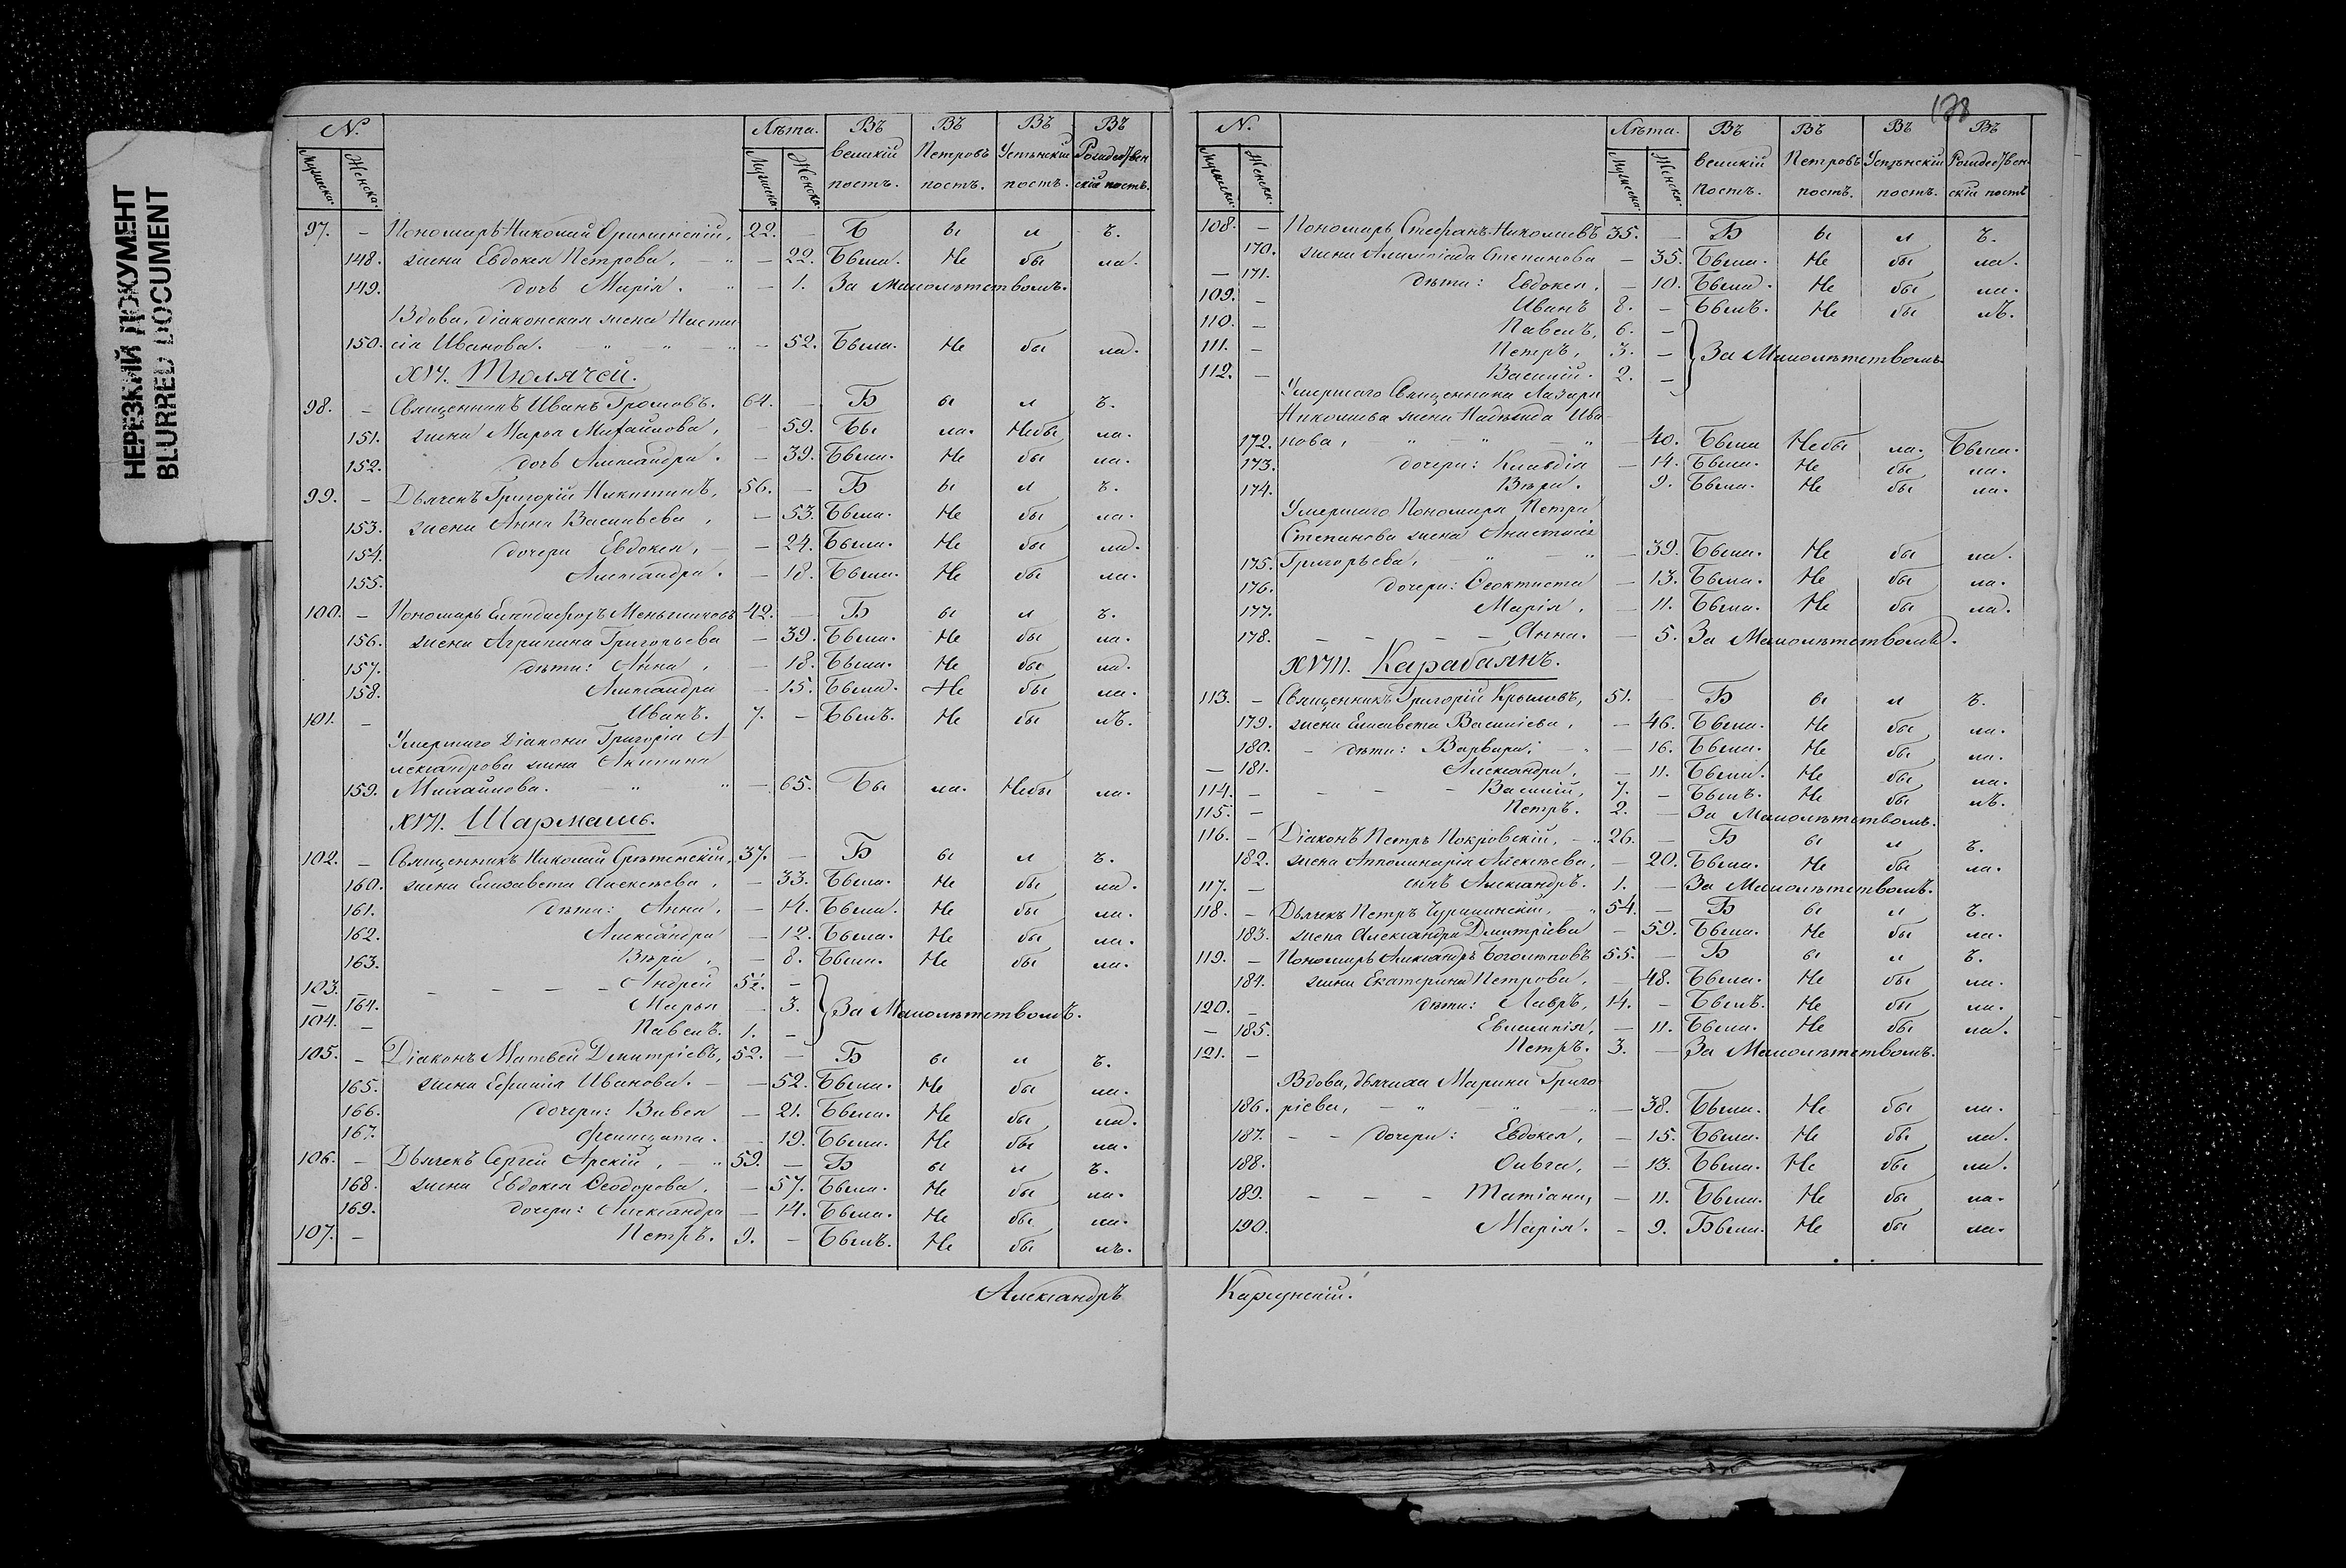 НЕРЕЗКИЙ ДОКУМЕНТ
BLURRED DOCUMENT
№. Лѣта. Въ Въ Въ Въ
Мужеска. Женска. Мужеска. Женска. великій Петровъ Успѣнскій Рождественскій
постъ. постъ. постъ. постъ.
97. – Пономарь Николай 22. – Б ы л ъ.
148. жена Евдокея Петрова, – 22. Была. Не бы ла.
149. дочь Марія. – 1. За Малолѣтетвомъ.
Вдова, діаконская жена Наста
150. сія Иванова. – 52. Была. Не бы ла.
XVI. Тюлячей.
98. – Священникъ Иванъ Громовъ. 64. – Б ы л ъ.
151. жена Марья Михайлова, – 59. Бы ла. Небы ла.
152. дочь Александра. – 39. Была. Не бы ла.
99. – Дьячекъ Григорій Никитинъ, 56. – Б ы л ъ.
153. жена Анна Васильева, – 53. Была. Не бы ла.
154. дочери Евдокея, – 24. Была. Не бы ла.
155. Александра. – 18. Была. Не бы ла.
100. – Пономарь Меньшиковъ 42. – Б ы л ъ.
156. жена Агрипина Григорьева – 39. Была. Не бы ла.
157. дѣти: Анна, – 18. Была. Не бы ла.
158. Александра – 15. Была. Не бы ла.
101. – Иванъ. 7. – Былъ. Не бы лъ.
Умершаго Діакона Григорія А
лександрова жена Акилина
159. Михайлова. – 65. Бы ла. Небы ла.
XVII. Шармашь.
102. – Священникъ Николай Срѣтенскій, 37. – Б ы л ъ.
160. жена Елизавета Алексѣева, – 33. Была. Не бы ла.
161. дѣти: Анна, – 14. Была. Не бы ла.
162. Александра – 12. Была. Не бы ла.
163. Вѣра, – 8. Была. Не бы ла.
103. – – – – Андрей 5½. –
– 164. Марья – 3. За Малолѣтетвомъ.
104. – Павелъ. 1. –
105. – Діаконъ Матвей Дмитріевъ, 52. – Б ы л ъ.
165. жена Ефимія Иванова. – 52. Была. Не бы ла.
166. дочери: Вивея – 21. Была. Не бы ла.
167. Фелицата. – 19. Была. Не бы ла.
106. – Дьячекъ Сергей Арскій, 59. – Б ы л ъ.
168. жена Евдокея Ѳеодорова, – 57. Была. Не бы ла.
169. дочери: Александра – 14. Была. Не бы ла.
107. – Петръ. 9. – Былъ. Не бы лъ.
Александръ
178
№. Лѣта. Въ Въ Въ Въ
Мужеска. Женска. Мужеска. Женска. великій Петровъ Успѣнскій Рождествен
постъ. постъ. постъ. скій постъ
108. – Пономарь Стефанъ Николаевъ 35. – Б ы л ъ.
170. жена Степанова – 35. Была. Не бы ла.
– 171. дѣти: Евдокея, – 10. Была. Не бы ла.
109. – Иванъ 8. – Былъ. Не бы лъ.
110. – Павелъ, 6. –
111. – Петръ, 3. – За Малолѣтетвомъ.
112. – Василій. 2. –
Умершаго Священника Лазаря
Николаева жена Надѣжда Ива
172. нова, – 40. Была Небы ла. Была.
173. дочери: Клавдія – 14. Была. Не бы ла.
174. Вѣра. 9. Была. Не бы ла.
Умершаго Пономаря Петра
Степанова жена Анастасія
175. Григорьева, – 39. Была. Не бы ла.
176. дочери: Ѳеоктиста – 13. Была. Не бы ла.
177. Марія, – 11. Была. Не бы ла.
178. – – – – Анна. – 5. За Малолѣтетвомъ.
XVIII. Карабаянъ.
113. – Священникъ Григорій Крыловъ, 51. – Б ы л ъ.
179. жена Елисавета Василіева, – 46. Была. Не бы ла.
180. – дѣти: Варвара, – 16. Была. Не бы ла.
– 181. Александра, – 11. Была. Не бы ла.
114. – – – – Василій, 7. – Былъ. Не бы лъ.
115. – Петръ. 2. – За Малолѣтетвомъ.
116. – Діаконъ Петръ Покровскій, 26. – Б ы л ъ.
182. жена Апполинарія Алексѣева, – 20. Была. Не бы ла.
117. – сынъ Александръ. 1. – За Малолѣтетвомъ.
118. – Дьячекъ Петръ Чурилинскій, 54. – Б ы л ъ.
183. жена Александра Дмитріева – 59. Была. Не бы ла.
119. – Пономарь Александръ Боголѣповъ 55. – Б ы л ъ.
184. жена Екатерина Петрова, – 48. Была. Не бы ла.
120. – дѣти: Лавръ, 14. – Былъ. Не бы ла.
– 185. Евлампія, – 11. Была. Не бы ла.
121. – Петръ. 3. – За Малолѣтетвомъ.
Вдова, дьячиха Марина Григо
186. ріева, – 38. Была. Не бы ла.
187. – – дочери: Евдокея, – 15. Была. Не бы ла.
188. Ольга, – 13. Была. Не бы ла.
189. – – – Татіана, – 11. Была. Не бы ла.
190. Марія. – 9. Была. Не бы ла.